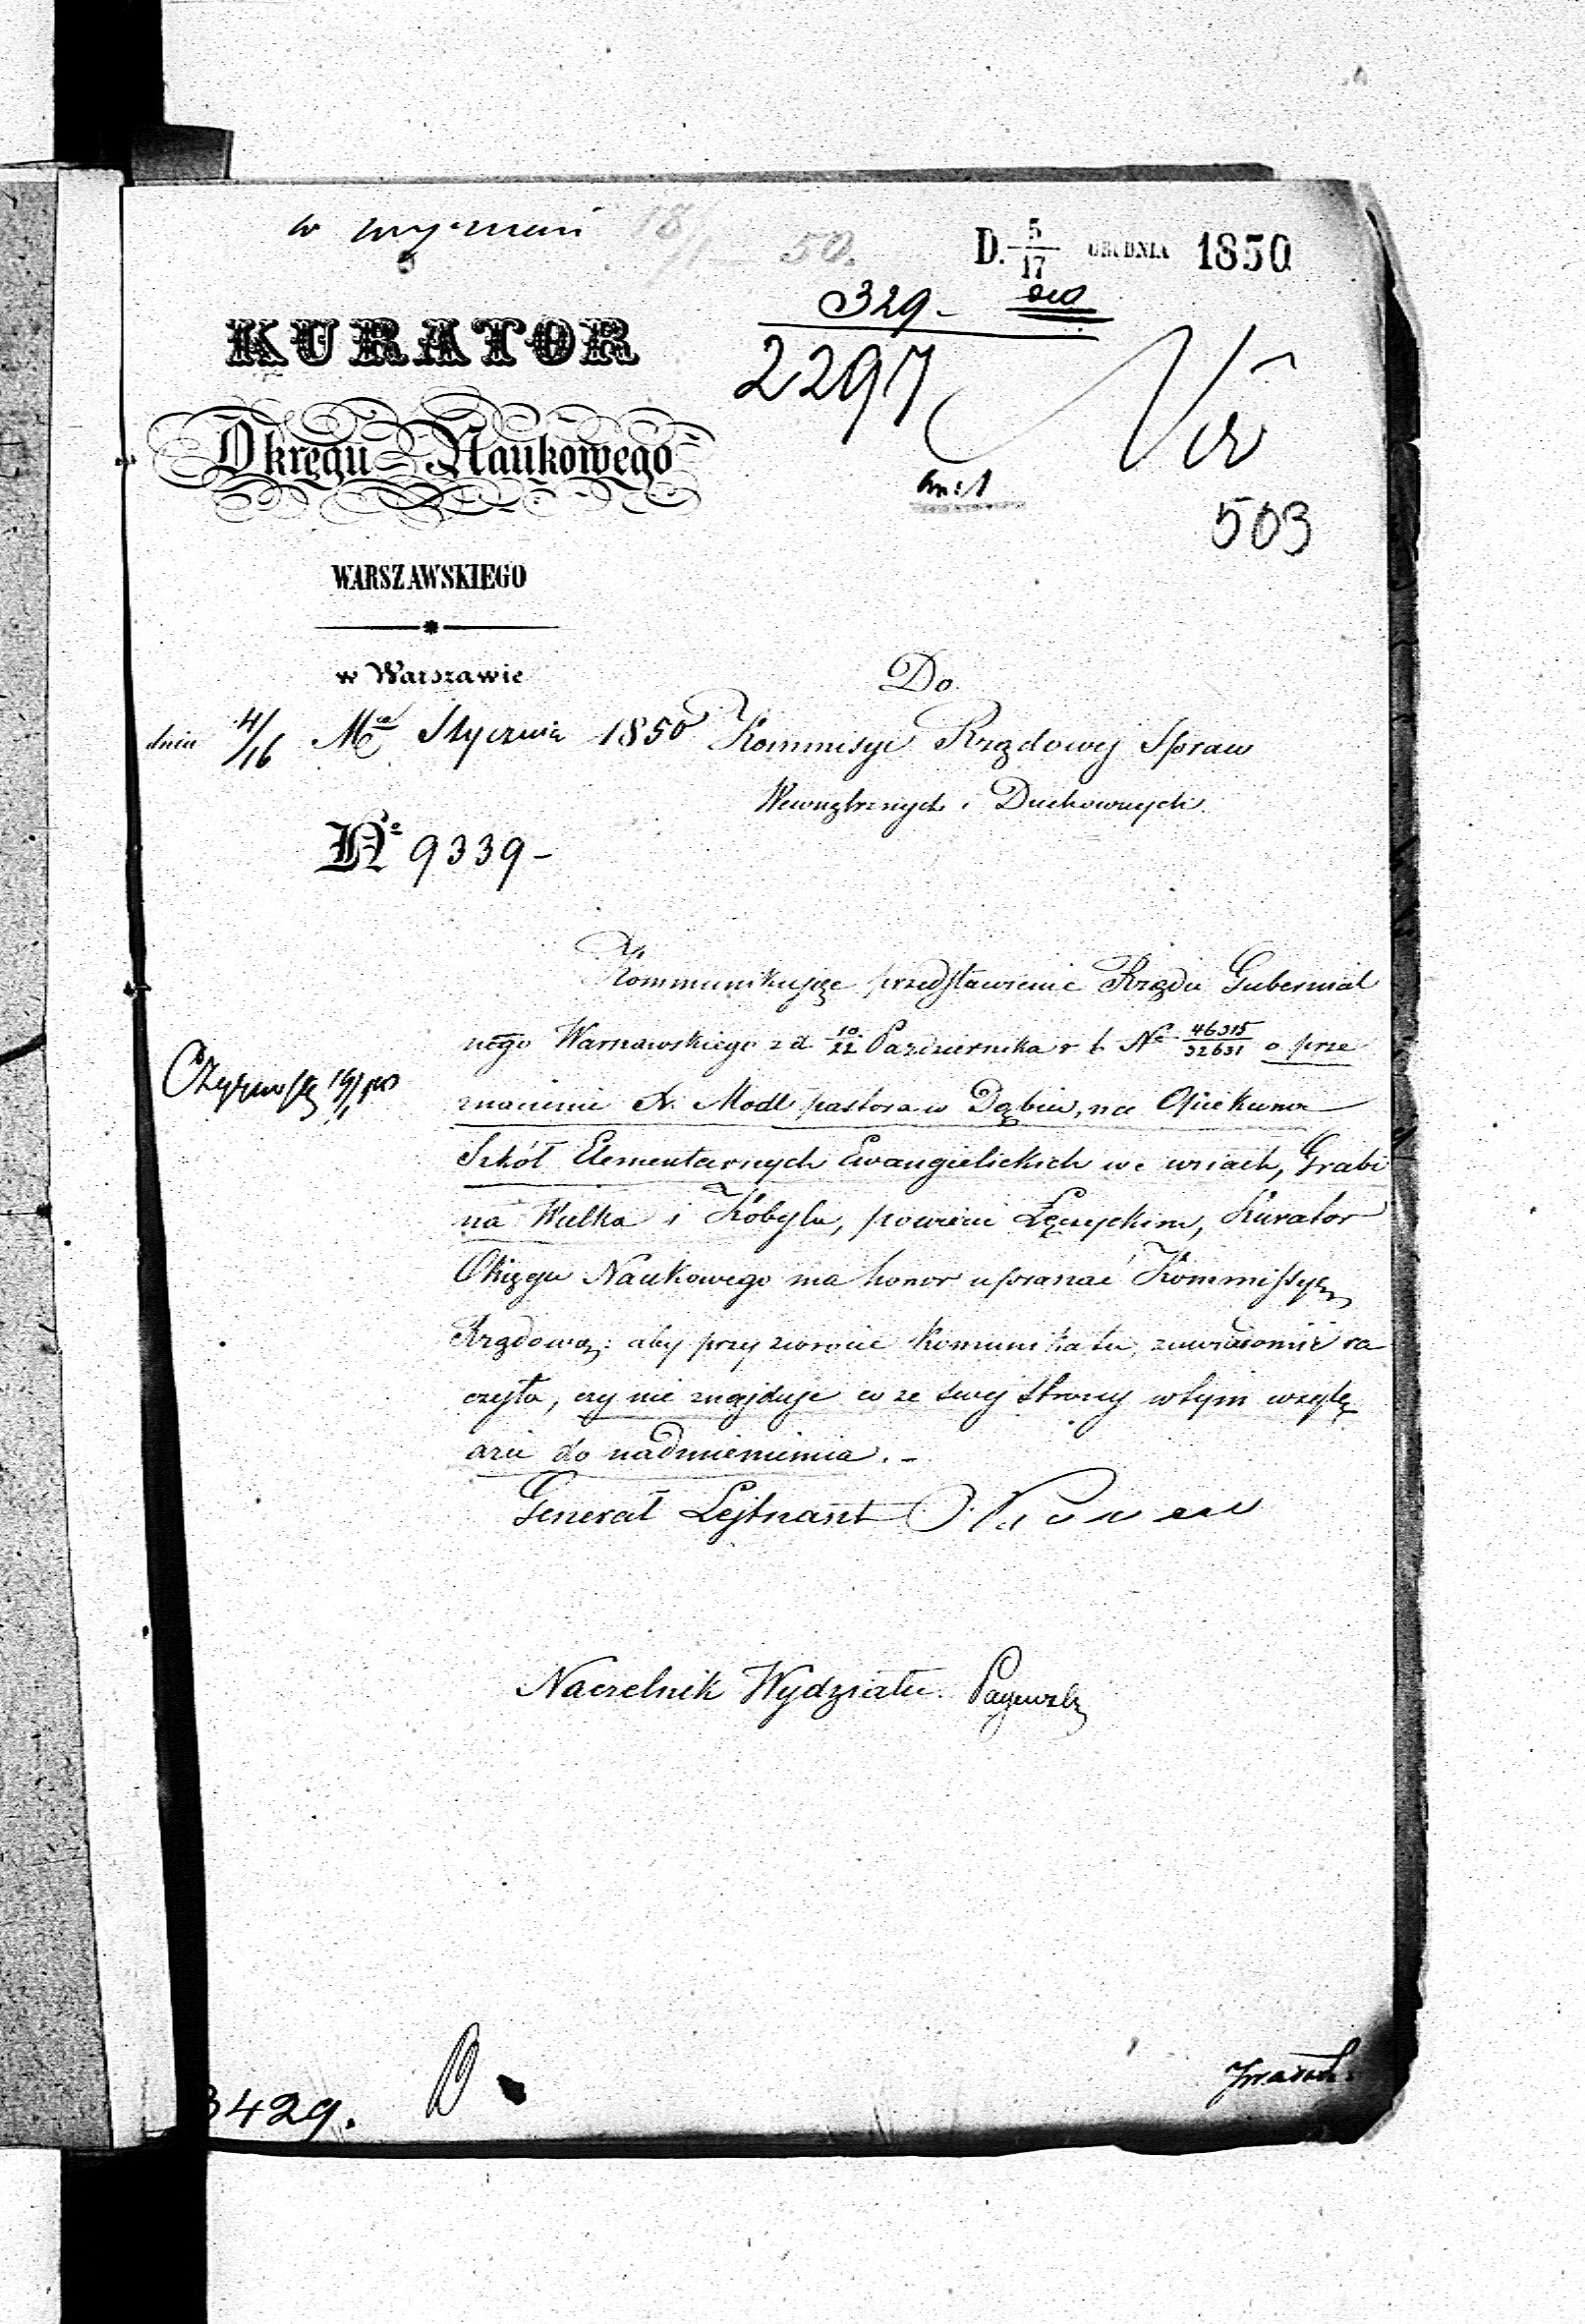 D. 5/17 GRUDNIA 1850
329-
2297
503
KURATOR
Okręgu Naukowego
WARSZAWSKIEGO
w Warszawie
dnia 4/16 Mca Stycznia 1850
Nº 9339-
Do
Kommisyi Rządowej Spraw
Wewnętrznych i Duchownych
Kommunikując przedstawienie Rządu Gubernial
nego Warszawskiego z d 10/22 Października r b Nº 46315/32631 o prze
znaczenie X. Modl pastora w Dąbiu, na Opiekuna
Szkół Elementarnych Ewangielickich we wsiach, Grabi
na Wielka i Kobyla, powiecie Łęczyckim, Kurator
Okręgu Naukowego ma honor upraszać Kommissyę
Rządową: aby przy zwrocie komunikatu, zawiadomić ra
czyła, czy nie znajduje co ze swej strony w tym wzglę
dzie do nadmienienia.-
Generał Lejtnant
Naczelnik Wydziału
3429.